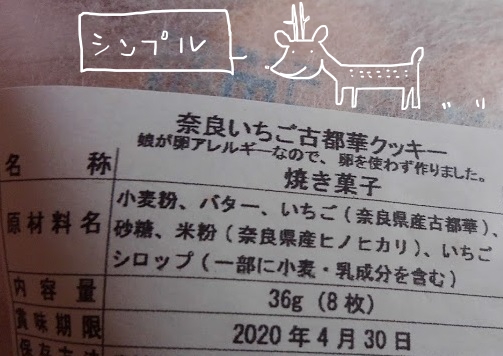 シンプル
奈良いちご古都華クッキー
娘が卵アレルギーなので、卵を使わず作りました。
名称 焼き菓子
原材料名 小麦粉、バター、いちご(奈良県産古都華)、
砂糖、米粉(奈良県産ヒノヒカリ)、いちご
シロップ(一部に小麦・乳成分を含む)
内容量 36g(8枚)
賞味期限 2020年4月30日